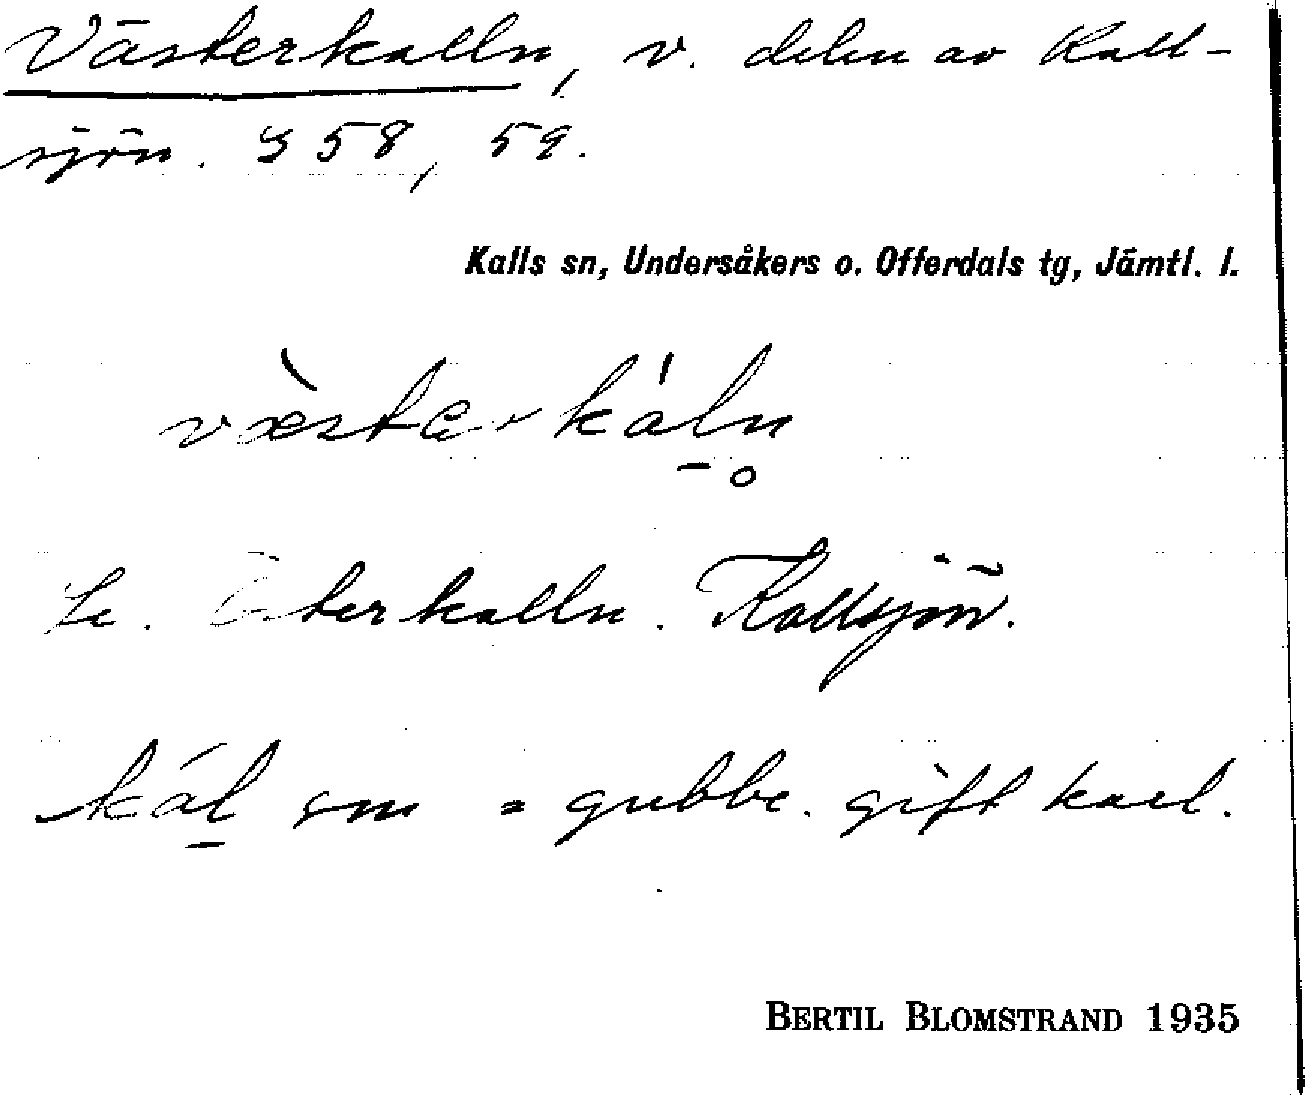 Västerkalln, v. delen av Kall-
sjön. S 58, 59.
Kalls sn, Undersåkers o. Offerdals tg, Jämtl. l.
væ̀sterkáḻn̥
Se. Österkalln. Kallsjön.
káḻ sm = gubbe. gift karl.
BERTIL BLOMSTRAND 1935